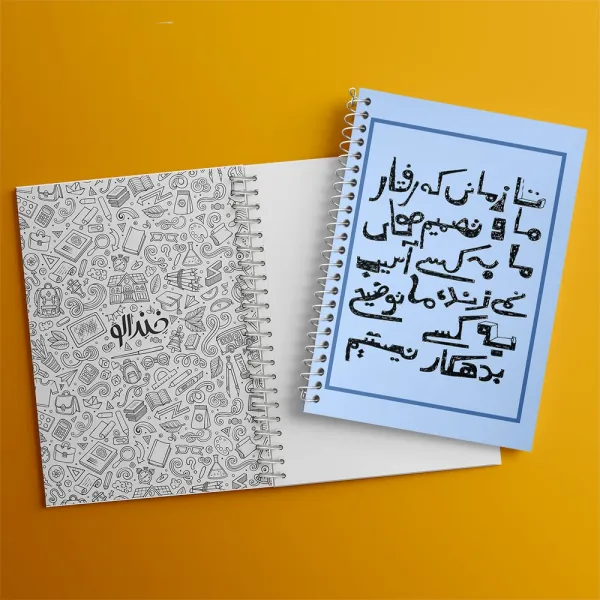 تا زمانی که رفتار
ما و تصمیم های
ما به کسی آسیب
نمی زند، ما توضیحی
به کسی
بدهکار نیستیم
خندالو